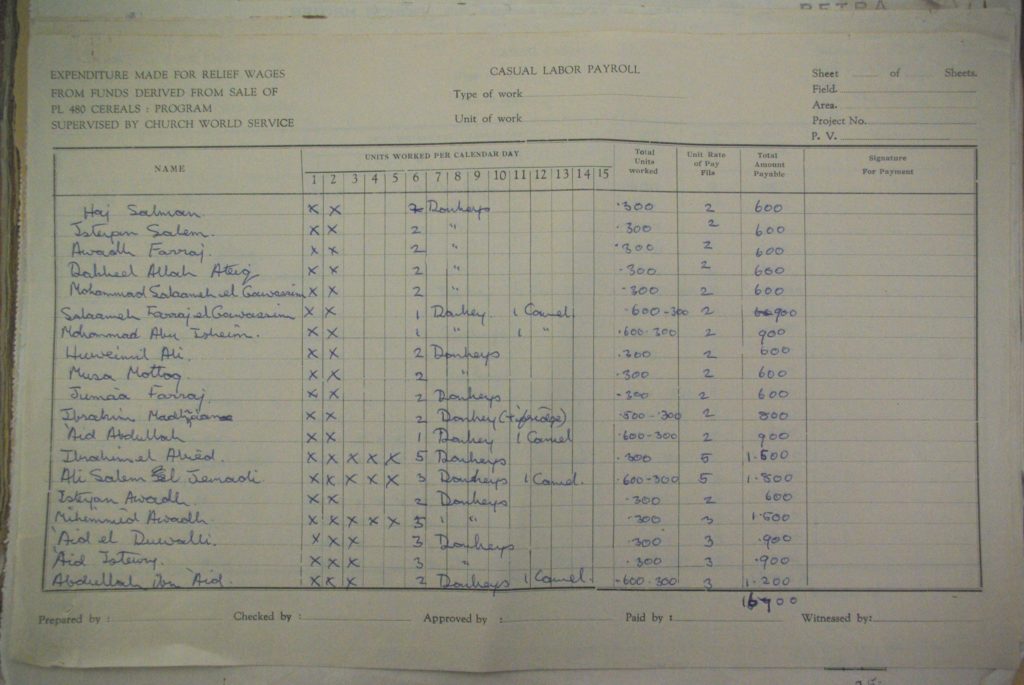 PETRA
EXPENDITURE MADE FOR RELIEF WAGES
FROM FUNDS DERIVED FROM SALE OF
PL 480 CEREALS : PROGRAM
SUPERVISED BY CHURCH WORLD SERVICE
CASUAL LABOR PAYROLL
Type of work
Unit of work
Sheet of Sheets.
Field.
Area.
Project No.
P. V.
NAME UNITS WORKED PER CALENDAR DAY Total Units worked Unit Rate of Pay Fils Total Amount Payable Signature For Payment
1 2 3 4 5 6 7 8 9 10 11 12 13 14 15
Haj Salman. x x 2 Donkeys .300 2 600
Isteyan Salem. x x 2 " .300 2 600
Awadh Farraj. x x 2 " .300 2 600
Dakheel Allah Ateig x x 2 " .300 2 600
Mohammad Salaameh el Gawassim x x 2 " .300 2 600
Salaameh Farraj el Gawassim x x 1 Donkey. 1 Camel .600-300 2 900
Mohammad Abu Isheim. x x 1 " 1 " .600-300 2 900
Huweimil Ali. x x 2 Donkeys .300 2 600
Musa Mottog x x 2 " .300 2 600
Jumaa Farraj x x 2 Donkeys .300 2 600
Ibrahim x x 2 Donkey .500-300 2 800
'Aid Abdullah x x 1 Donkey 1 Camel .600-300 2 900
Ibrahim el x x x x x 5 Donkeys .300 5 1.500
Ali Salem el Jemadi. x x x x x 3 Donkeys 1 Camel. .600-300 5 1.800
Isteyan Awadh x x 2 Donkeys .300 2 600
Mihemmed Awadh x x x x x 5 " .300 3 1.500
'Aid el Duwalli. x x x 3 Donkeys .300 3 .900
'Aid Istewy. x x x 3 " .300 3 .900
Abdullah ibn 'Aid. x x x 2 Donkeys 1 Camel. .600-300 3 1.200
16900
Prepared by : Checked by : Approved by : Paid by : Witnessed by: